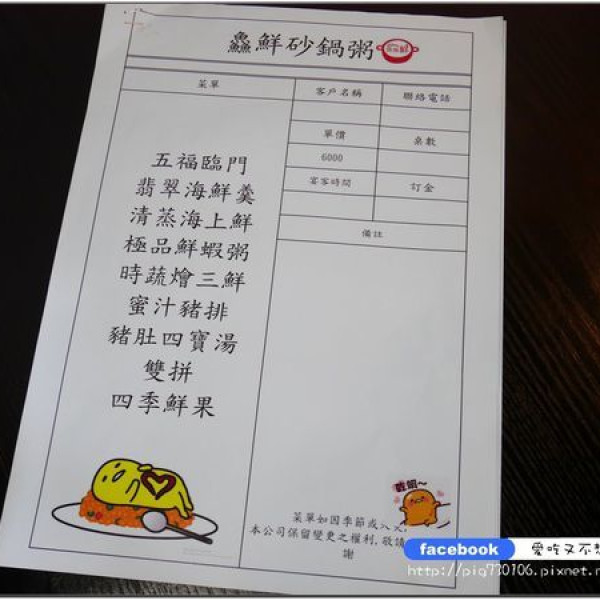 鱻鮮砂鍋粥
菜單
客戶名稱
聯絡電話
單價
桌數
6000
宴客時間
訂金
備註
五福臨門
翡翠海鮮羹
清蒸海上鮮
極品鮮蝦粥
時蔬燴三鮮
蜜汁豬排
豬肚四寶湯
雙拼
四季鮮果
菜單如因季節或
本公司保留變更之權利,敬請
謝
facebook
愛吃又不想
http://pig730106.pixnet.n